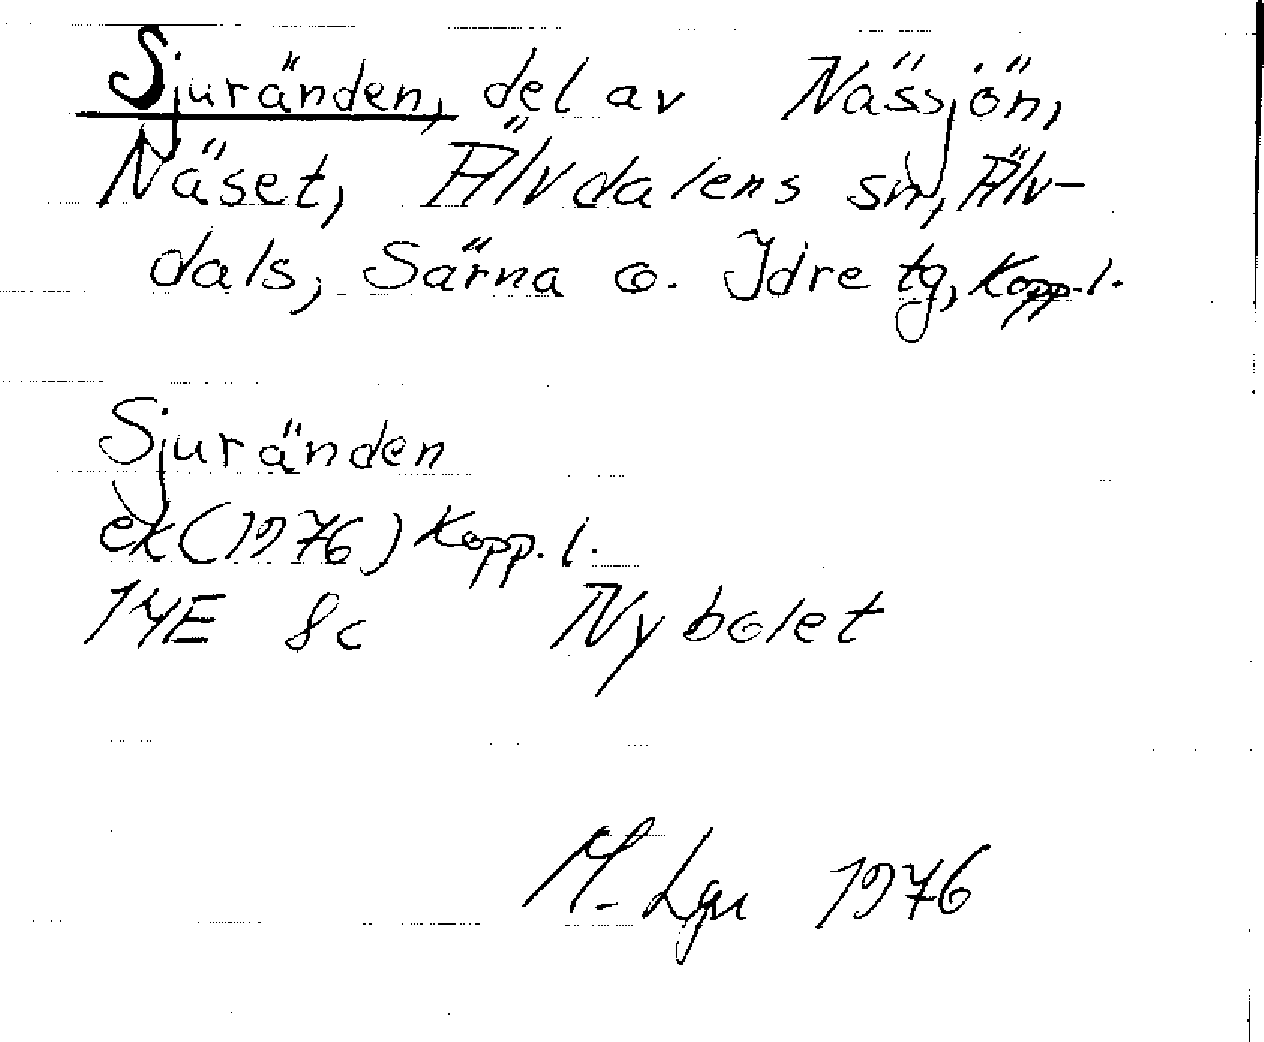 Sjuränden, del av Nässjön,
Näset, Älvdalens sn, Älv-
dals, Särna o. Idre tg, Kopp. l.
Sjuränden
ek (1976) Kopp. l.
14E 8c Nybolet
M. Lgn 1976